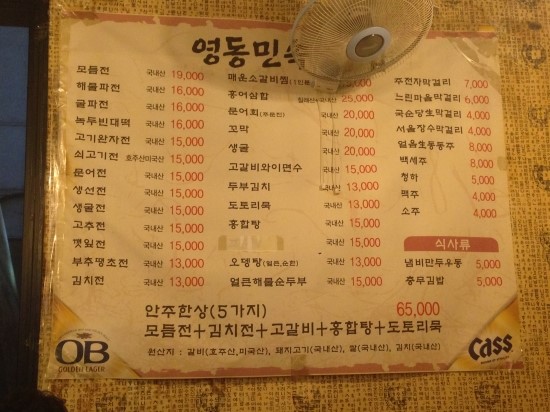 영동민속
모듬전 국내산 19,000
해물파전 국내산 16,000
굴파전 국내산 16,000
녹두빈대떡 국내산 16,000
고기완자전 국내산 15,000
쇠고기전 호주산미국산 15,000
문어전 국내산 15,000
생선전 국내산 15,000
생굴전 국내산 15,000
고추전 국내산 15,000
깻잎전 국내산 15,000
부추땡초전 국내산 13,000
김치전 국내산 13,000
매운소갈비찜
홍어삼합 25,000
문어회 국내산 20,000
꼬막 국내산 20,000
생굴 국내산 20,000
고갈비와이면수 국내산 15,000
두부김치 국내산 13,000
도토리묵 국내산 13,000
홍합탕 국내산 15,000
오뎅탕(얼큰,순한) 국내산 13,000
얼큰해물순두부 국내산 15,000
주전자막걸리 7,000
느린마을막걸리 6,000
국순당생막걸리 4,000
서울장수막걸리 4,000
얼음생동동주 8,000
백세주 8,000
청하 5,000
맥주 4,000
소주 4,000
식사류
냄비만두우동 5,000
충무김밥 5,000
안주한상(5가지) 65,000
모듬전+김치전+고갈비+홍합탕+도토리묵
원산지 : 갈비(호주산,미국산), 돼지고기(국내산), 쌀(국내산), 김치(국내산)
OB
GOLDEN LAGER
Cass